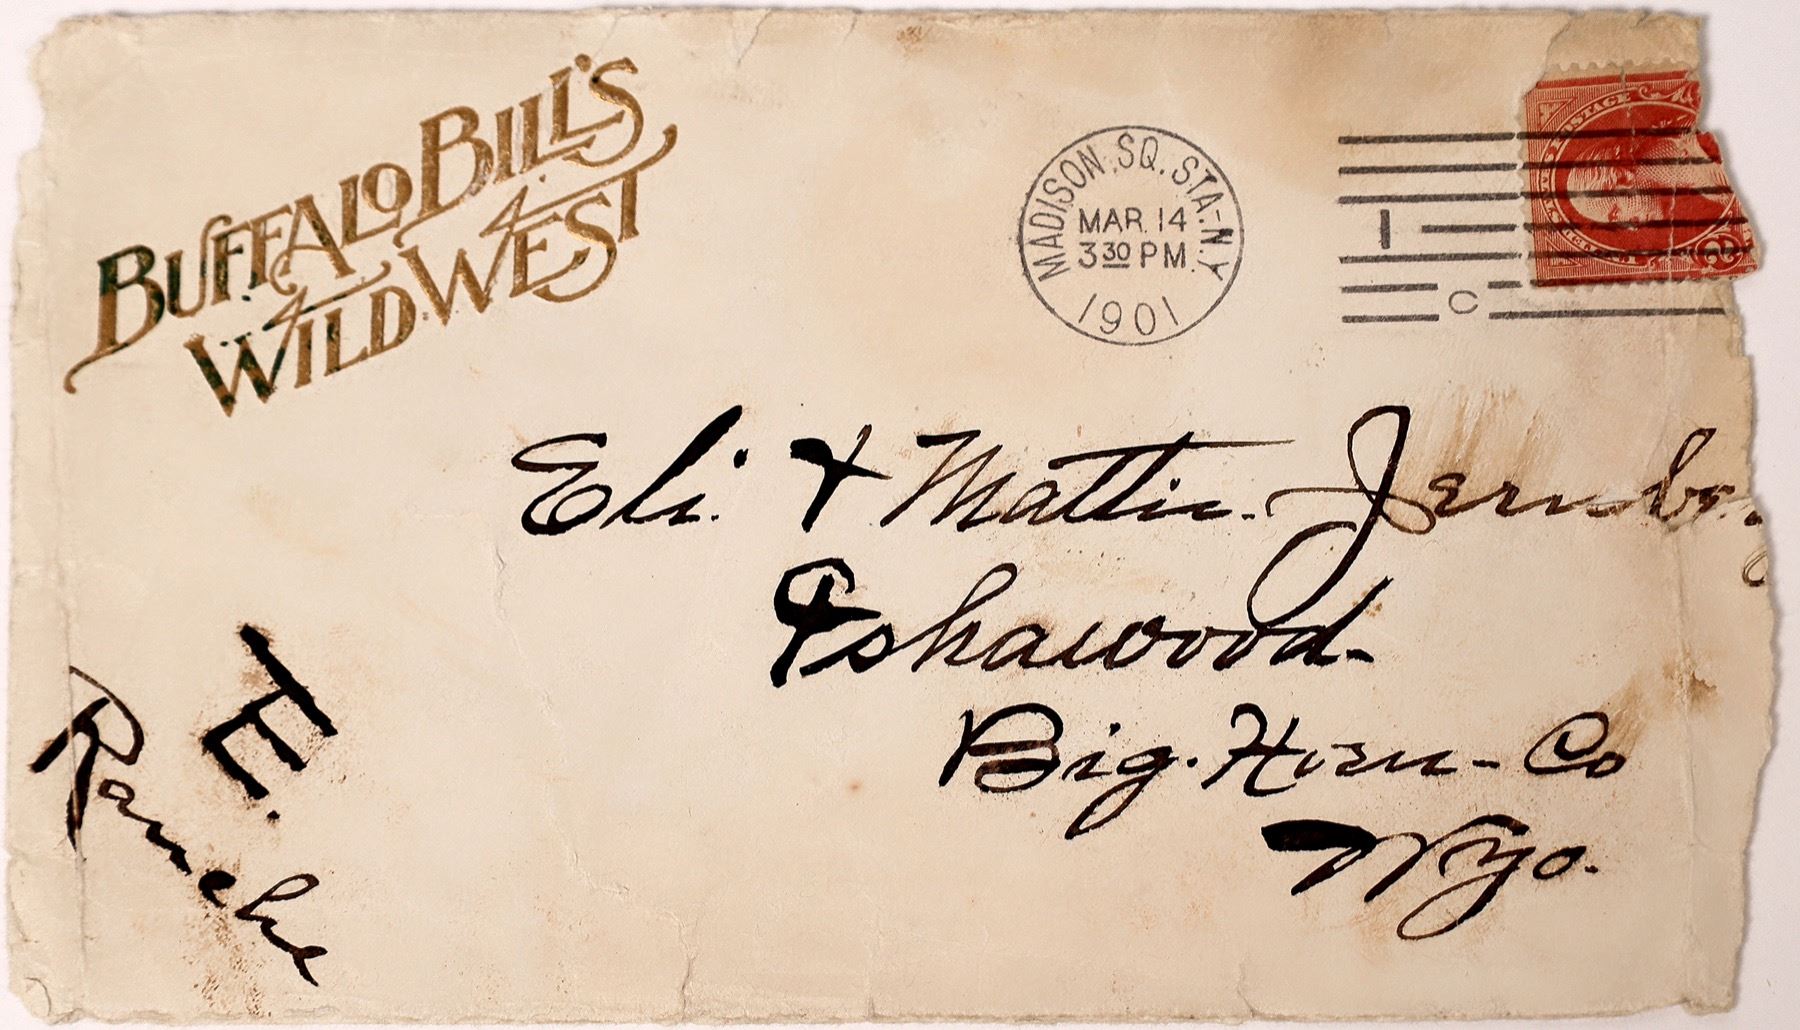 BUFFALO BILL'S
WILD WEST
MADISON SQ. STA. N.Y.
MAR. 14
3 30 PM.
1901
1
C
POSTAGE
2
Eli & Mattie
Ishawood
Big Horn Co
Wyo.
TE.
Ranche